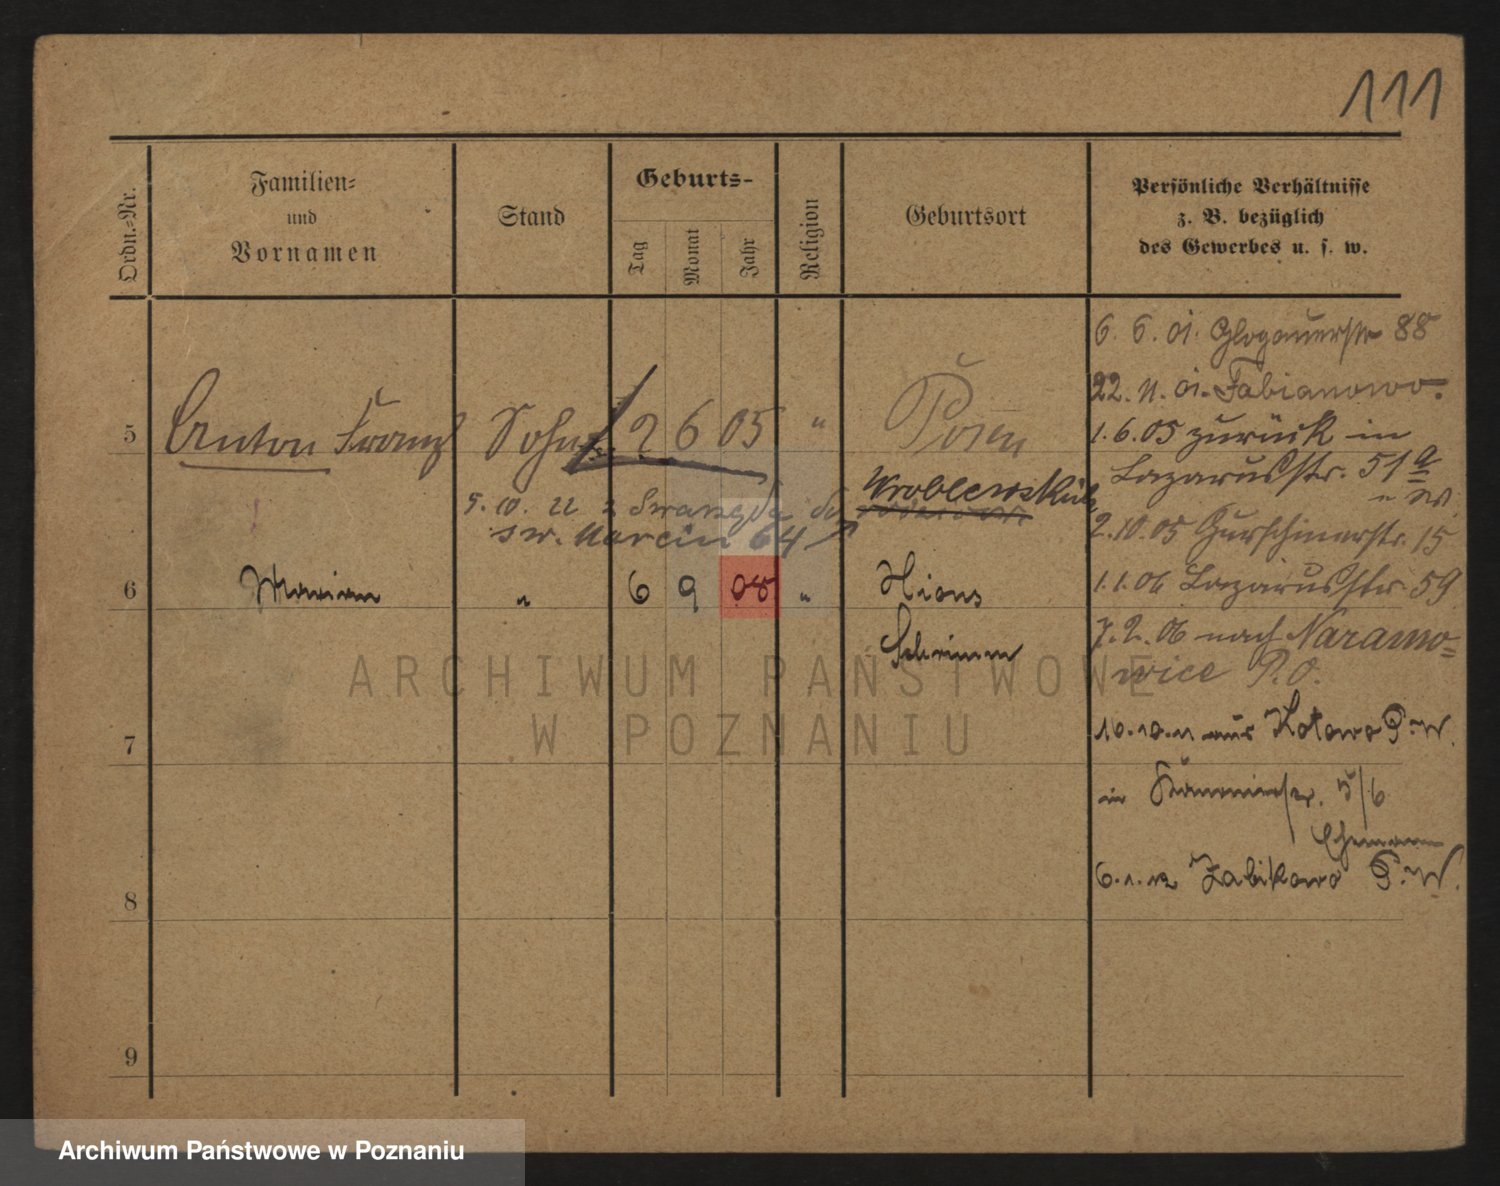 111
Ordn.-Nr.
Familien-
und
Vornamen
Stand
Geburts-
Tag
Monat
Jahr
Religion
Geburtsort
Persönliche Verhältnisse
z. B. bezüglich
des Gewerbes u. s. w.
6. 6. 01. Glogauerstr 88
22. 11. 01. Fabianowo.
5 Anton Franz Sohn 2 6 05 " Posen
1. 6. 05 zurück in
Lazarusstr. 51a
5. 10. 22 z
Wroblewski
św. Marcin 64
2. 10. 05 Gurtschinerstr. 15
6 Marian " 6 9 08 " Xions
Schrimm
1. 1. 06 Lazarusstr. 59
7. 2. 06 nach Naramo=
wice P. O.
10. 10. 11 aus Kotowo P. W.
7
in 5/6
Ehemann
6. 1. 12 Zabikowo P. W.
8
9
ARCHIWUM PAŃSTWOWE
W POZNANIU
Archiwum Państwowe w Poznaniu